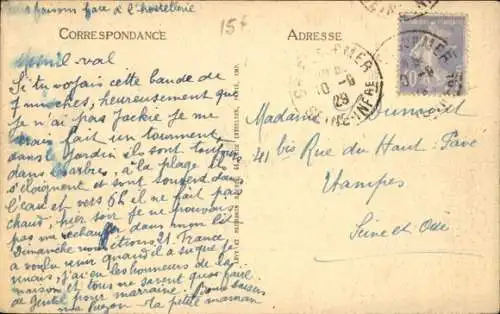 faisons face de l'hostellerie
15f
CORRESPONDANCE
ADRESSE
Mesnil-val
Si tu voyais cette bande de
7 mioches, heureusement que
je n'ai pas Jackie je me
serais fait un tourment
dans le jardin ils sont toujours
dans les arbres, à la plage ils
s'éloignent et sont souvent dans
l'eau et vers 5h il ne fait pas
chaud, hier soir je ne pouvais
pas me réchauffer dans mon lit
Dimanche nous étions 21. France
a voulu venir quand il a su que je
venais, j'ai eu les honneurs de la
maison et tous ne savent quoi faire
de gentil pour marraine. Bons baisers
ma Suzon - la petite maman
Madame
41 bis Rue du Haut-Pavé
Etampes
Seine et Oise
10-8
29